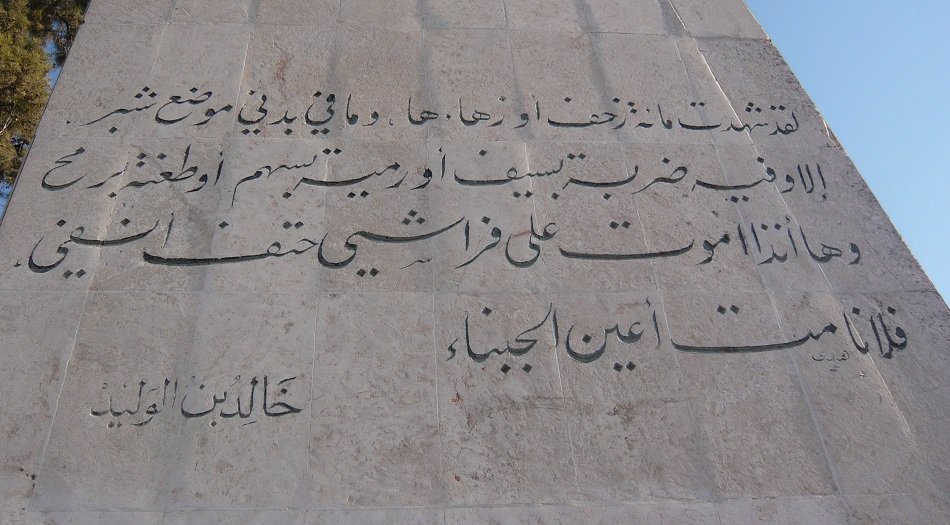 لقد شهدت مائة زحف أو زهاءها، وما في بدني موضع شبر
إلا وفيه ضربة بسيف أو رمية بسهم أو طعنة برمح
وها أنذا أموت على فراشي حتف أنفي،
فلا نامت أعين الجبناء
خَالِدُ بنُ الوَلِيدْ